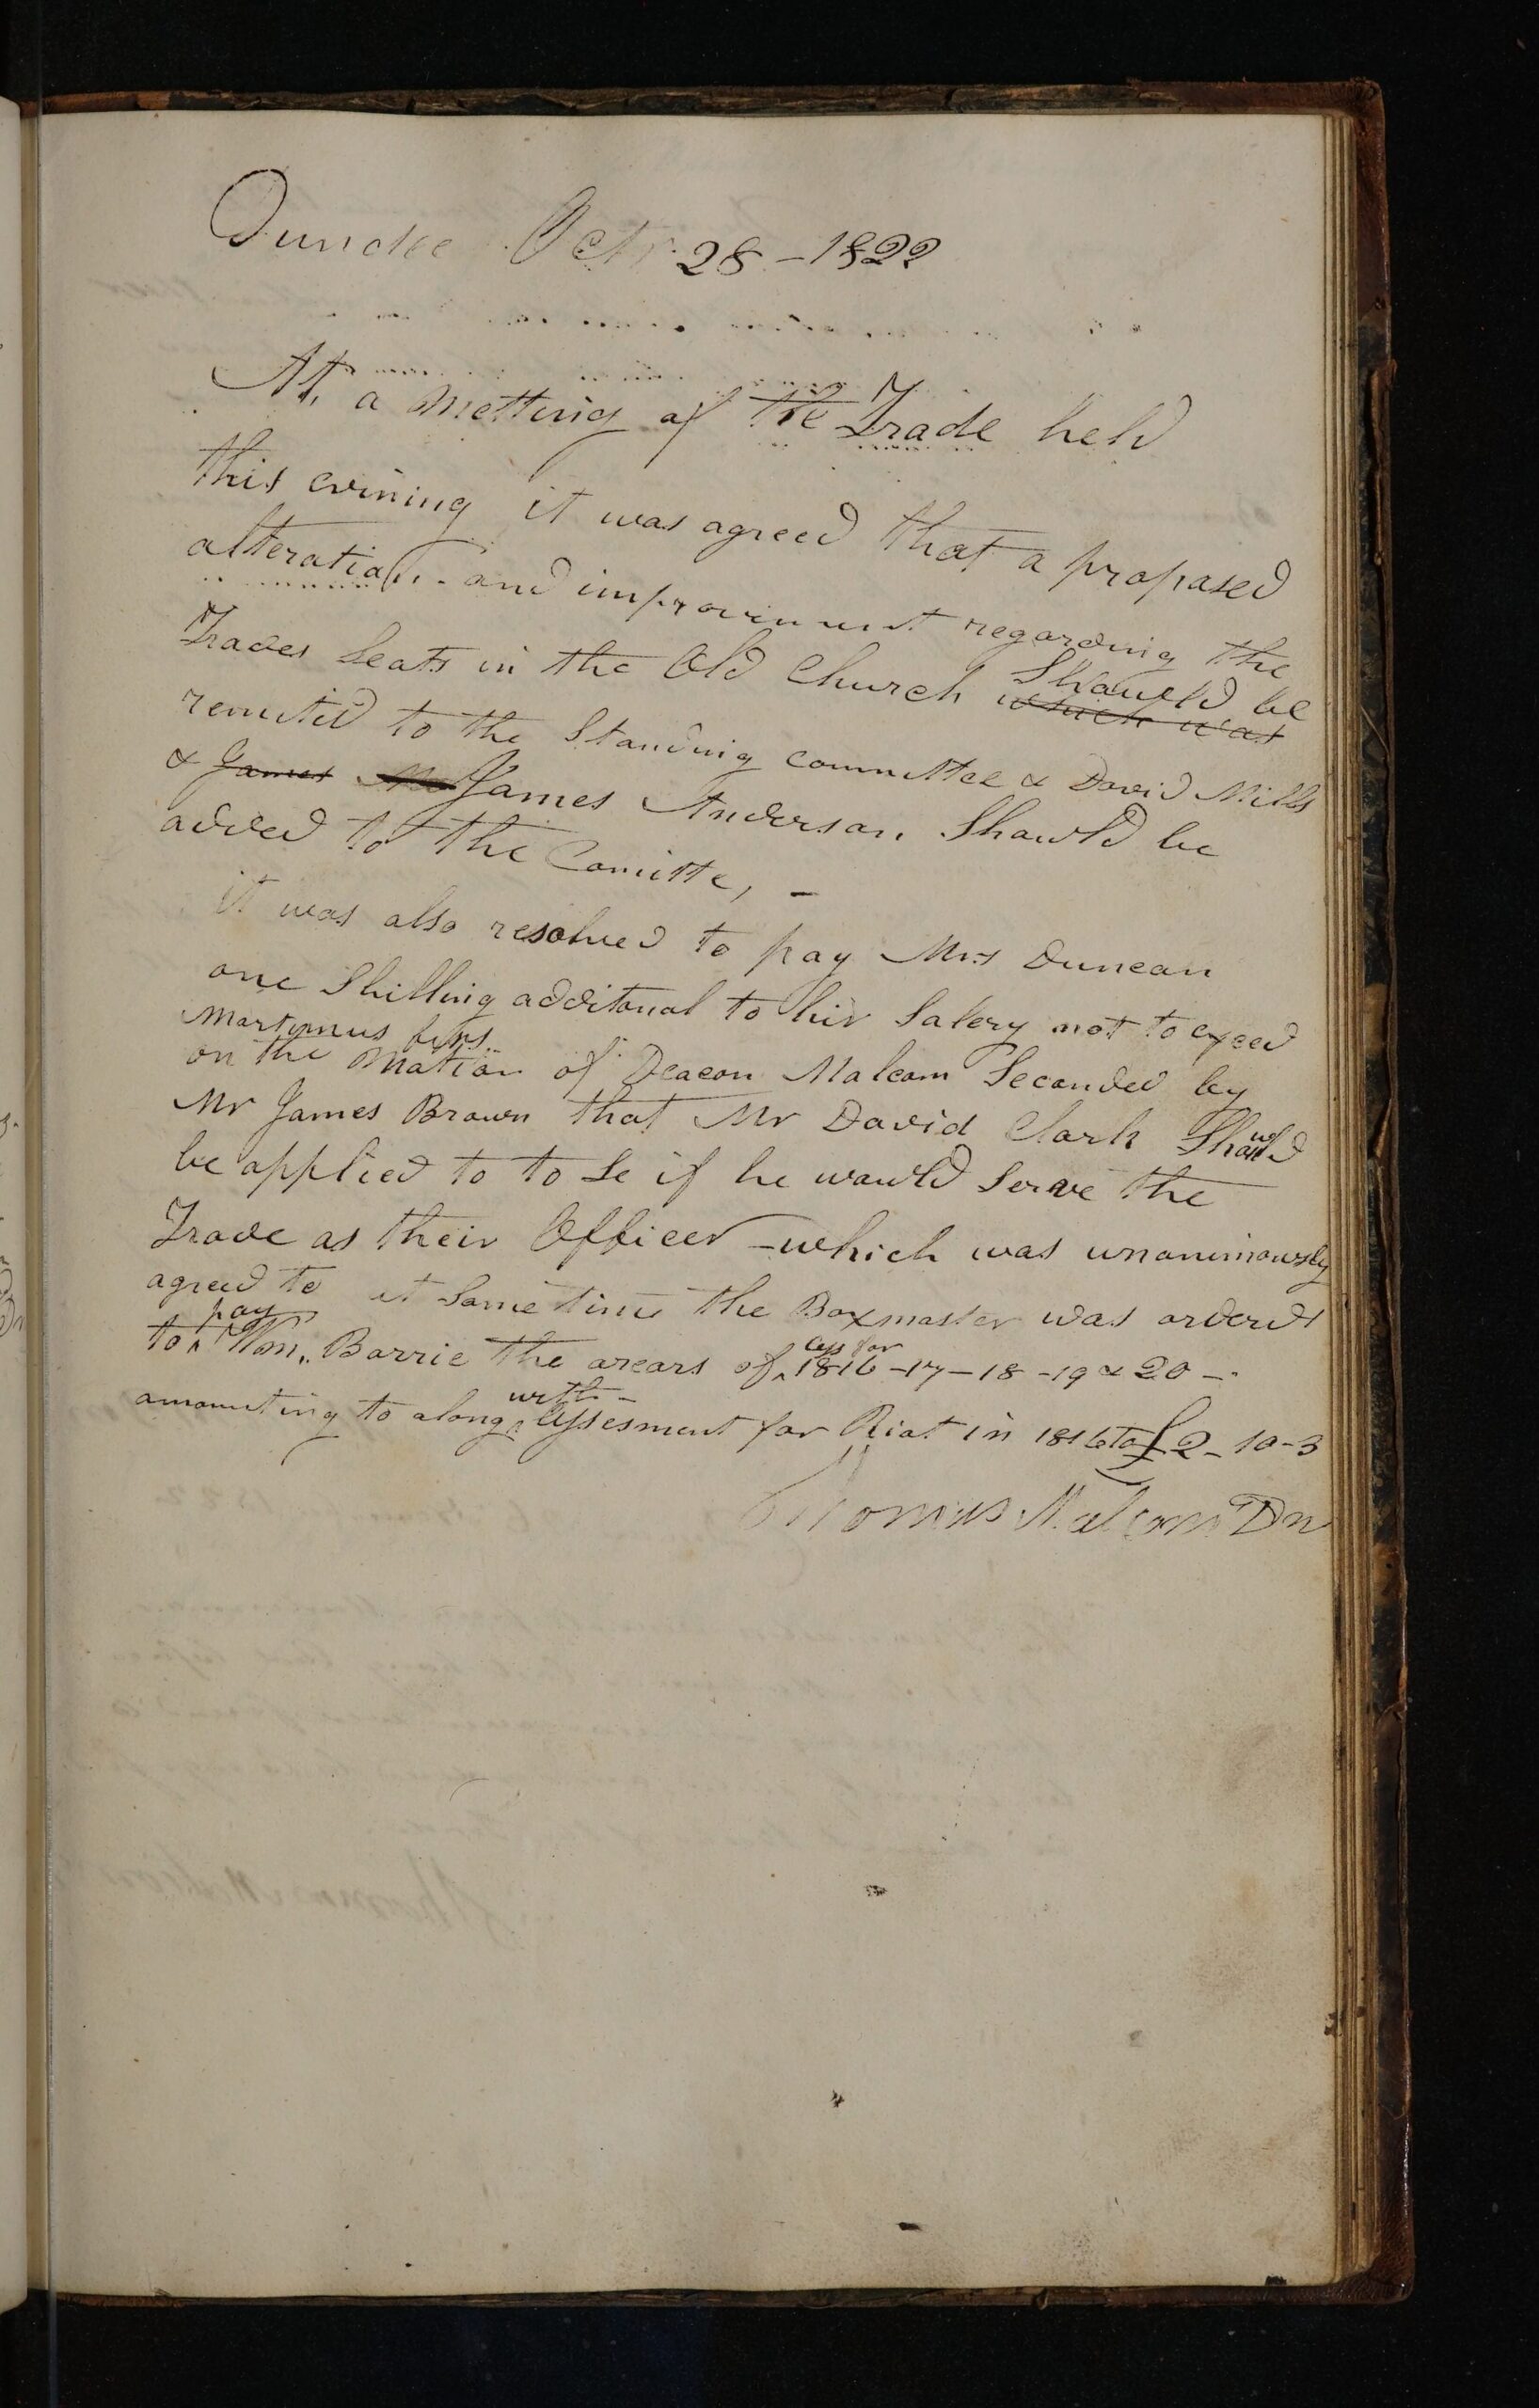 Dundee Octr 28 - 1822
At, a Metting of the Trade held
this evining it was agreed that a proposed
alteration - and improvinment regarding the
Trades Seats in the Old Church which was Should be
remited to the Standing committee & David Mills
& James James Anderson Should be
added to the Comitte, -
it was also resolved to pay Mrs Duncan
one Shilling additonal to hir Salery not to exceed
Martinmus
on the Mation of Deacon Malcom Seconded by
Mr James Brown that Mr David Clark Should
be applied to to Se if he would Serve the
Trade as their Officer - which was unanimously
agreed to at Same time the Boxmaster was orderd
to pay Wm. Barrie the arears of cess for 1816 - 17 - 18 - 19 & 20 -
amounting to along with - Assesment for Riot in 1816 to £2 - 10 - 3
Thomas Malcom Dn